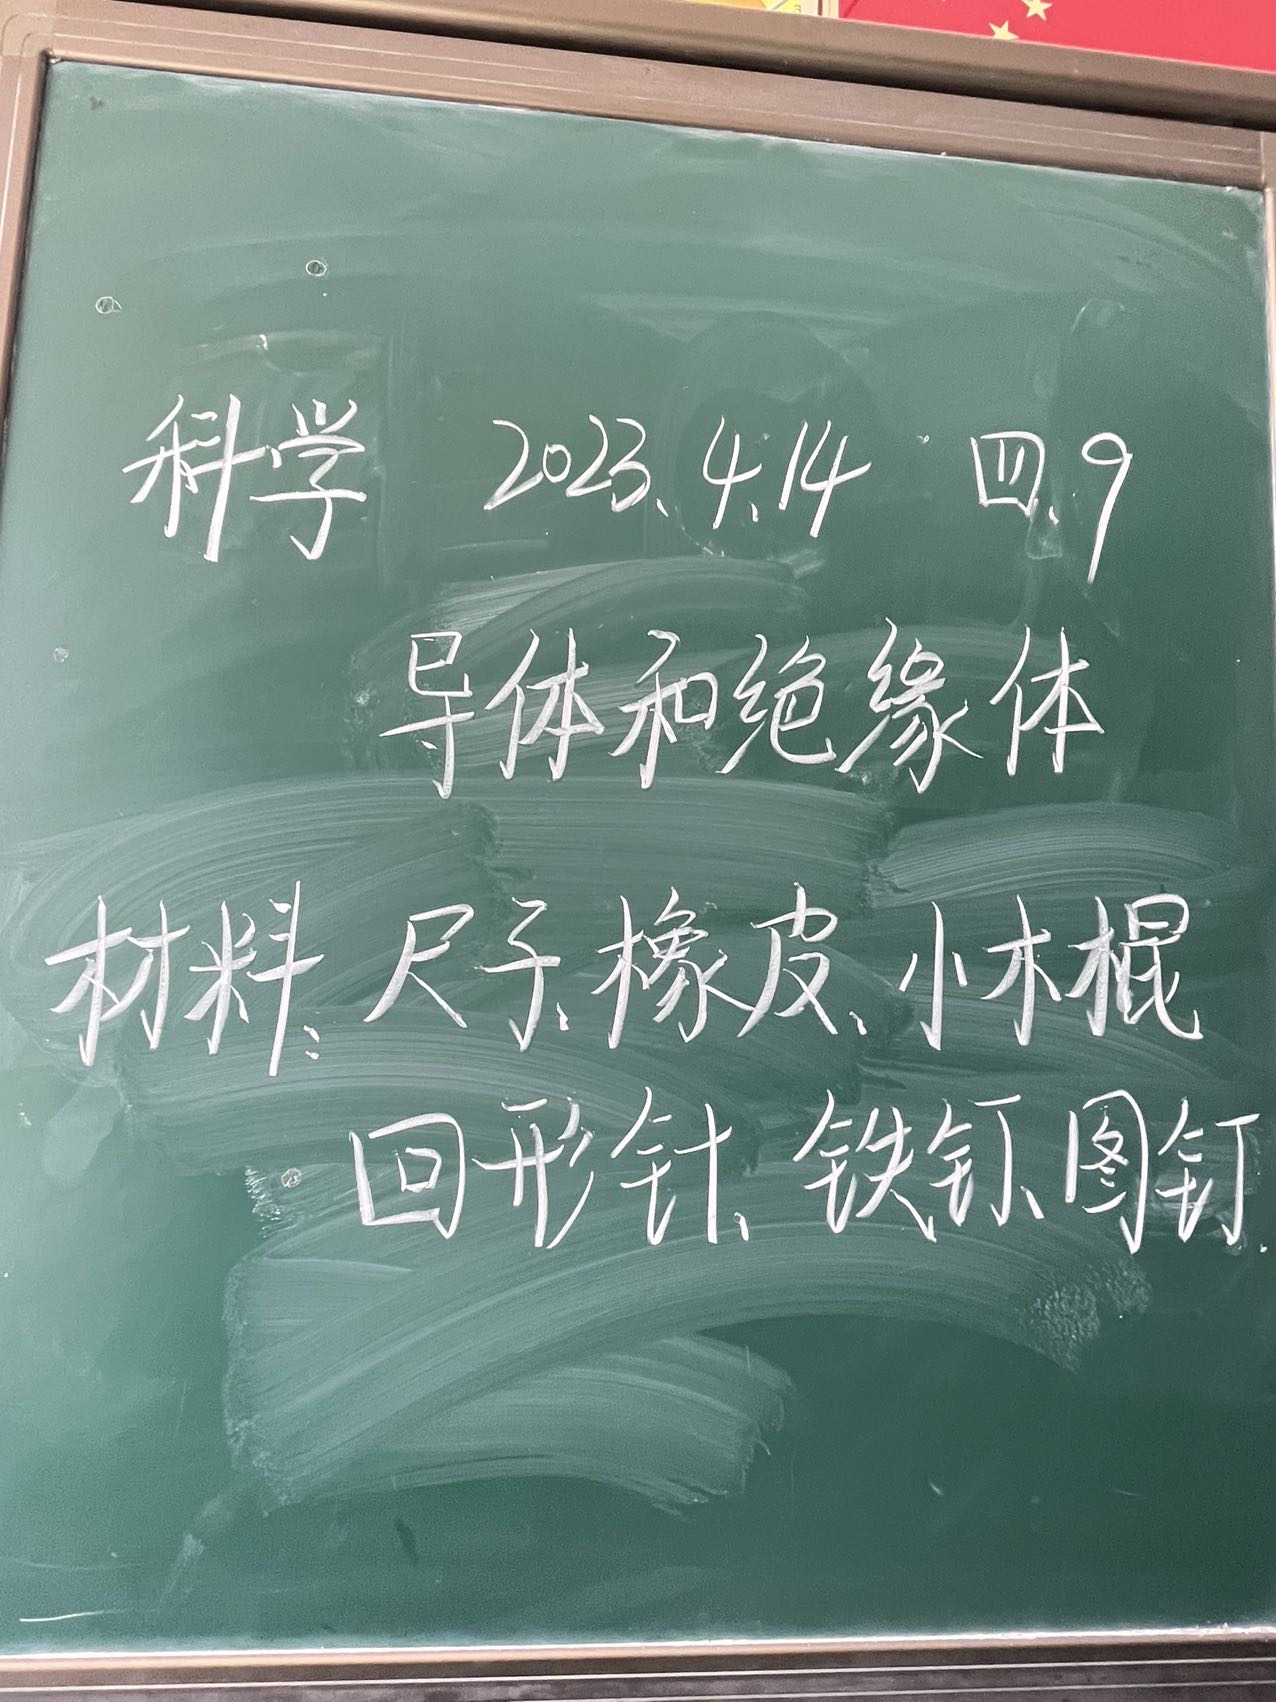 科学 2023.4.14 四.9
导体和绝缘体
材料:尺子、橡皮、小木棍
回形针、铁钉、图钉.